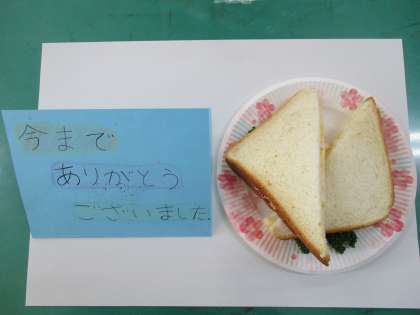 今まで
ありがとう
ございました